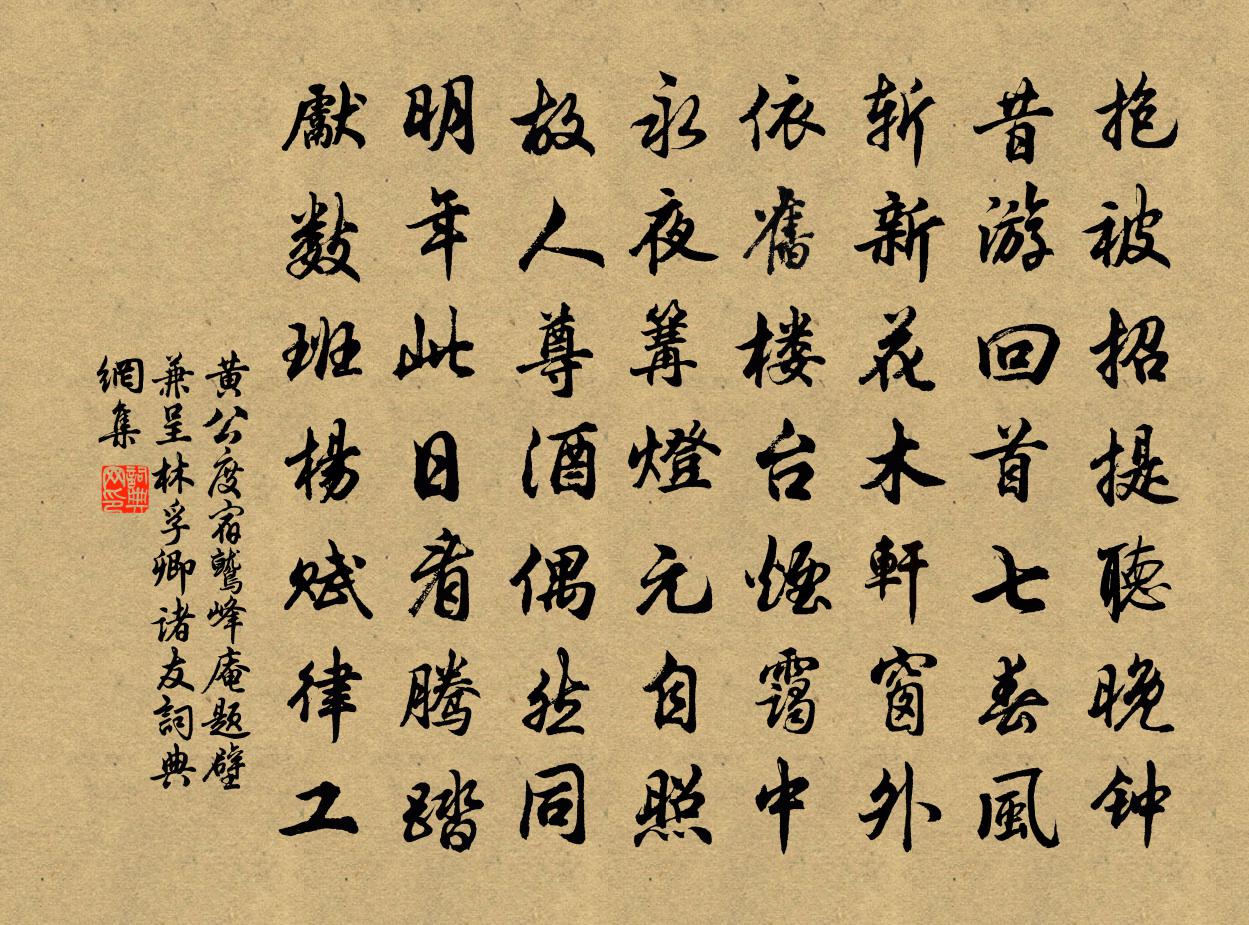 抱被招提聽晚钟
昔游回首七春風
斩新花木軒窗外
依舊楼台煙靄中
永夜篝燈元自照
故人尊酒偶然同
明年此日看腾踏
獻数班楊赋律工
黄公度宿鷲峰庵题壁
兼呈林孚卿诸友詞典
網集
詞典网印